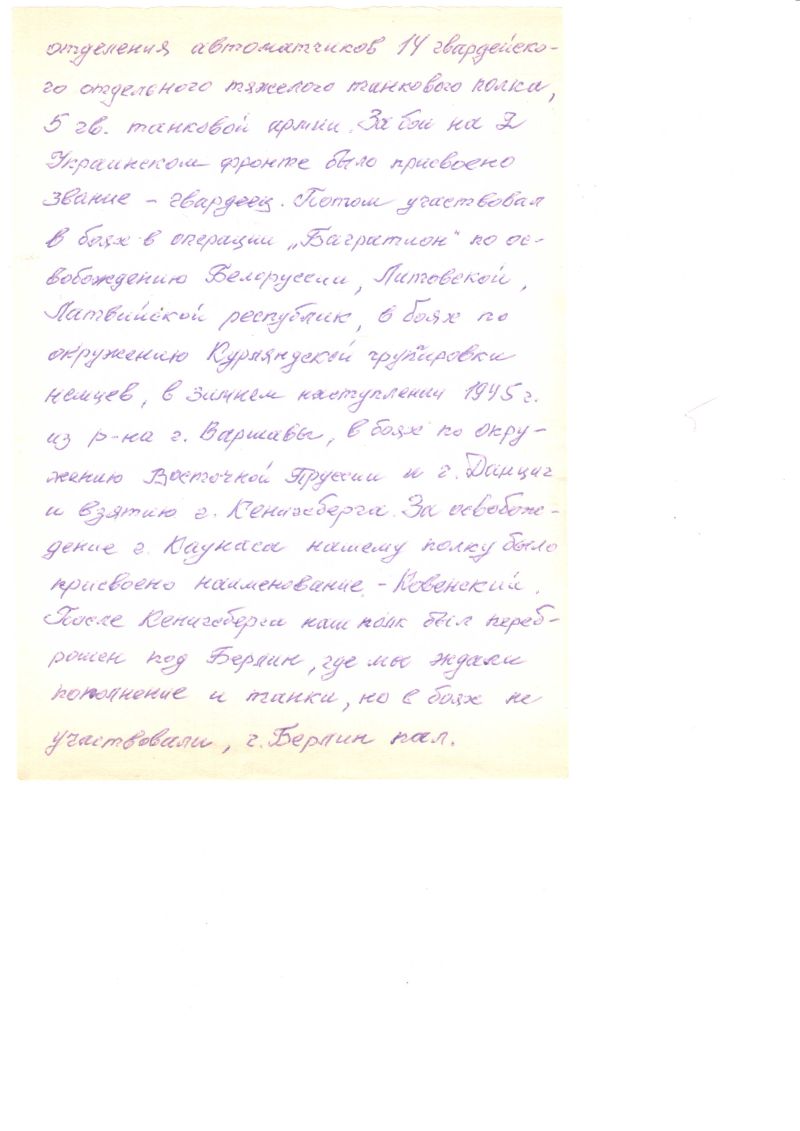 отделения автоматчиков 14 гвардейско-
го отдельного тяжелого танкового полка,
5 гв. танковой армии. За бои на 2
Украинском фронте было присвоено
звание - гвардеец. Потом участвовал
в боях в операции „Багратион" по ос-
вобождению Белоруссии, Литовской,
Латвийской республик, в боях по
окружению Курляндской группировки
немцев, в зимнем наступлении 1945 г.
из р-на г. Варшавы, в боях по окру-
жению Восточной Пруссии и г. Данциг
и взятию г. Кенигсберга. За освобож-
дение г. Каунаса нашему полку было
присвоено наименование - Ковенский.
После Кенигсберга наш полк был переб-
рошен под Берлин, где мы ждали
пополнение и танки, но в боях не
участвовали, г. Берлин пал.